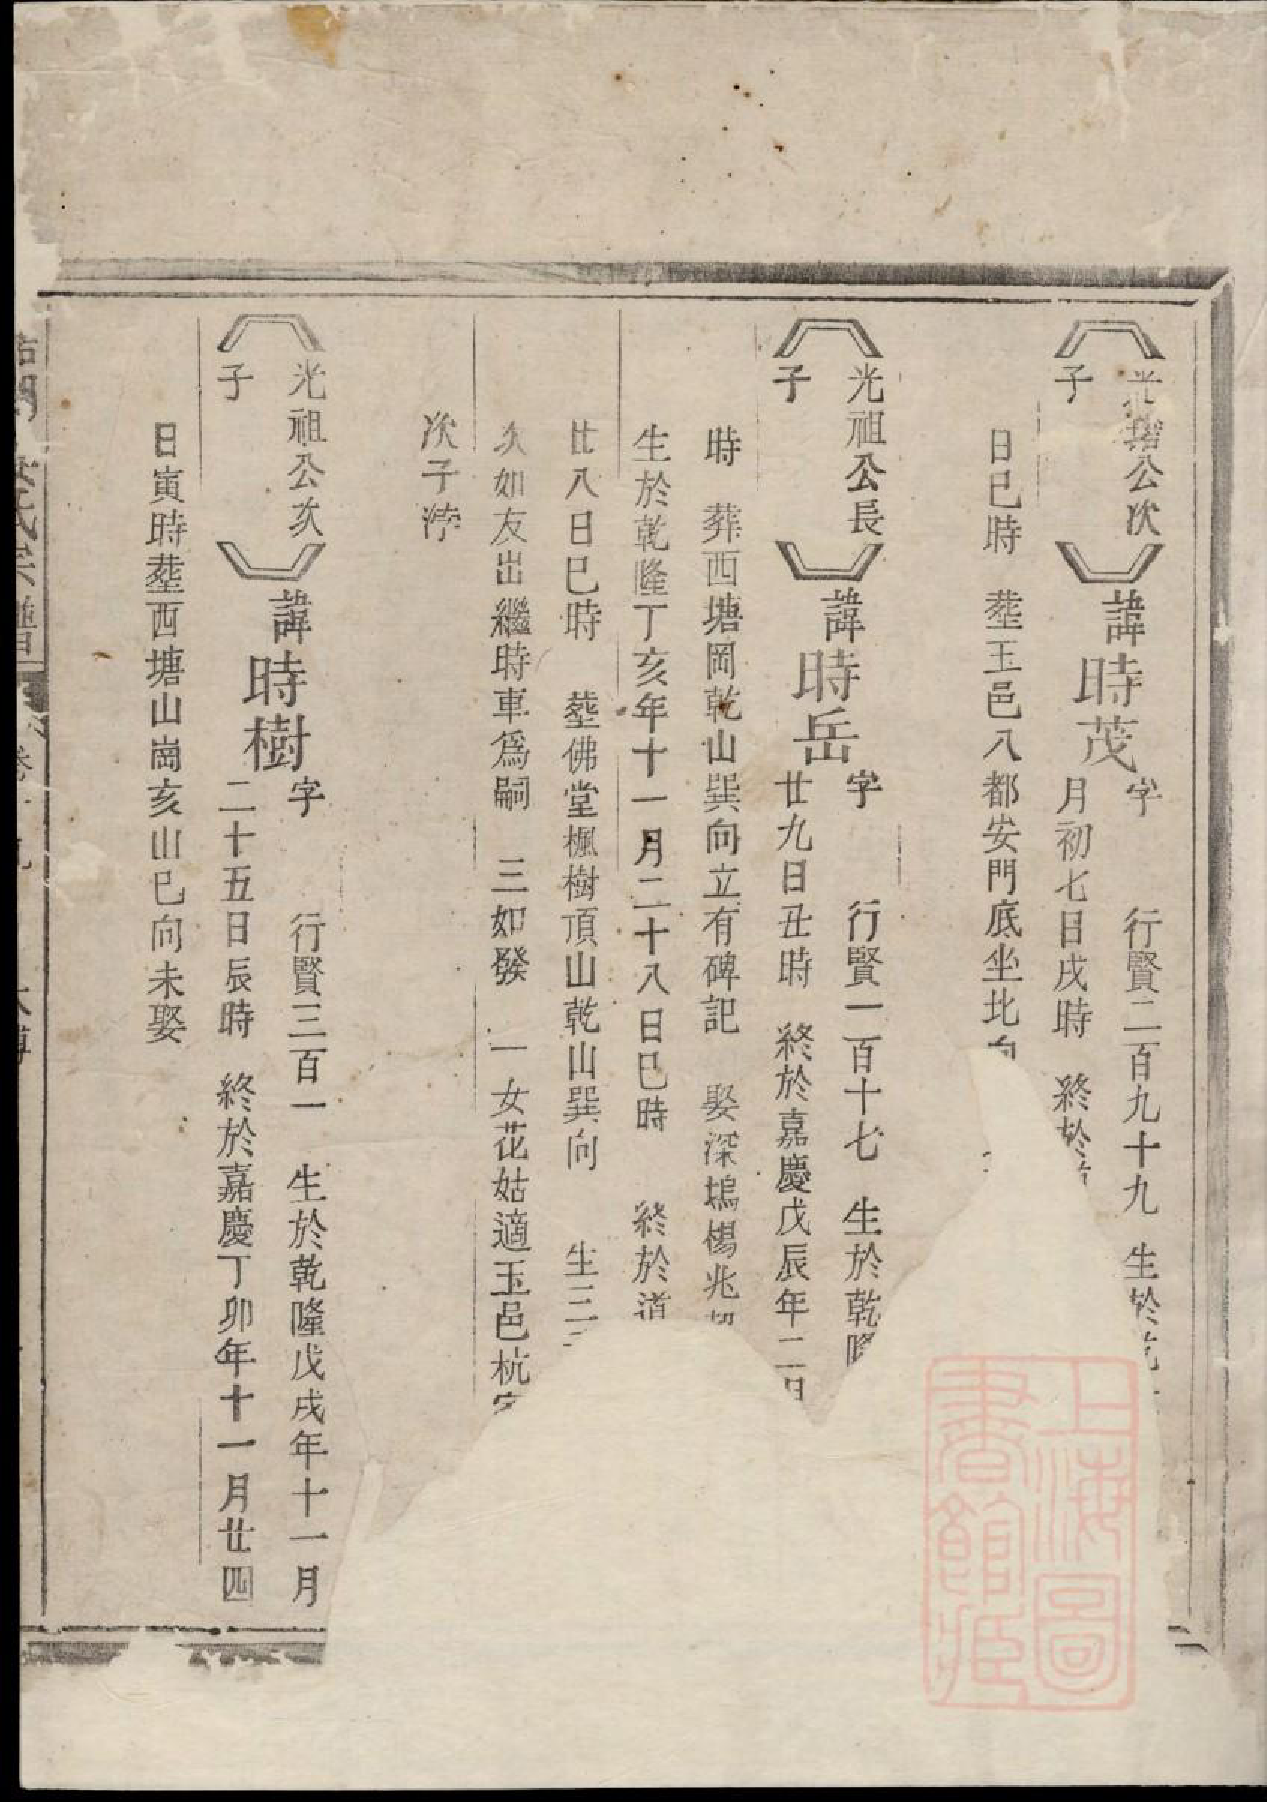 公次
子
諱時茂
字 行賢二百九十九 生於乾
月初七日戌時 終於
日巳時 塟玉邑八都安門底坐北向
光祖公長
子
諱時岳
字 行賢二百十七 生於乾隆
廿九日丑時 終於嘉慶戊辰年二月
時 葬西塘岡乾山巽向立有碑記 娶深塢楊兆
生於乾隆丁亥年十一月二十八日巳時 終於道
廿八日巳時 塟佛堂楓樹頂山乾山巽向 生三
次如友出繼時車爲嗣 三如發 一女花姑適玉邑杭
次子
光祖公次
子
諱時樹
字 行賢三百一 生於乾隆戊戌年十一月
二十五日辰時 終於嘉慶丁卯年十一月廿四
日寅時塟西塘山崗亥山巳向未娶
氏宗譜
上海圖書館藏